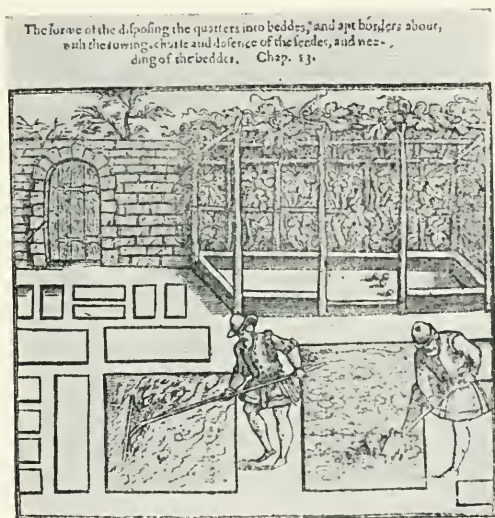 The forme of the disposing the quarters into beddes, and apt borders about,
with the sowing, choise and defence of the seedes, and wee-
ding of the beddes. Chap. 13.